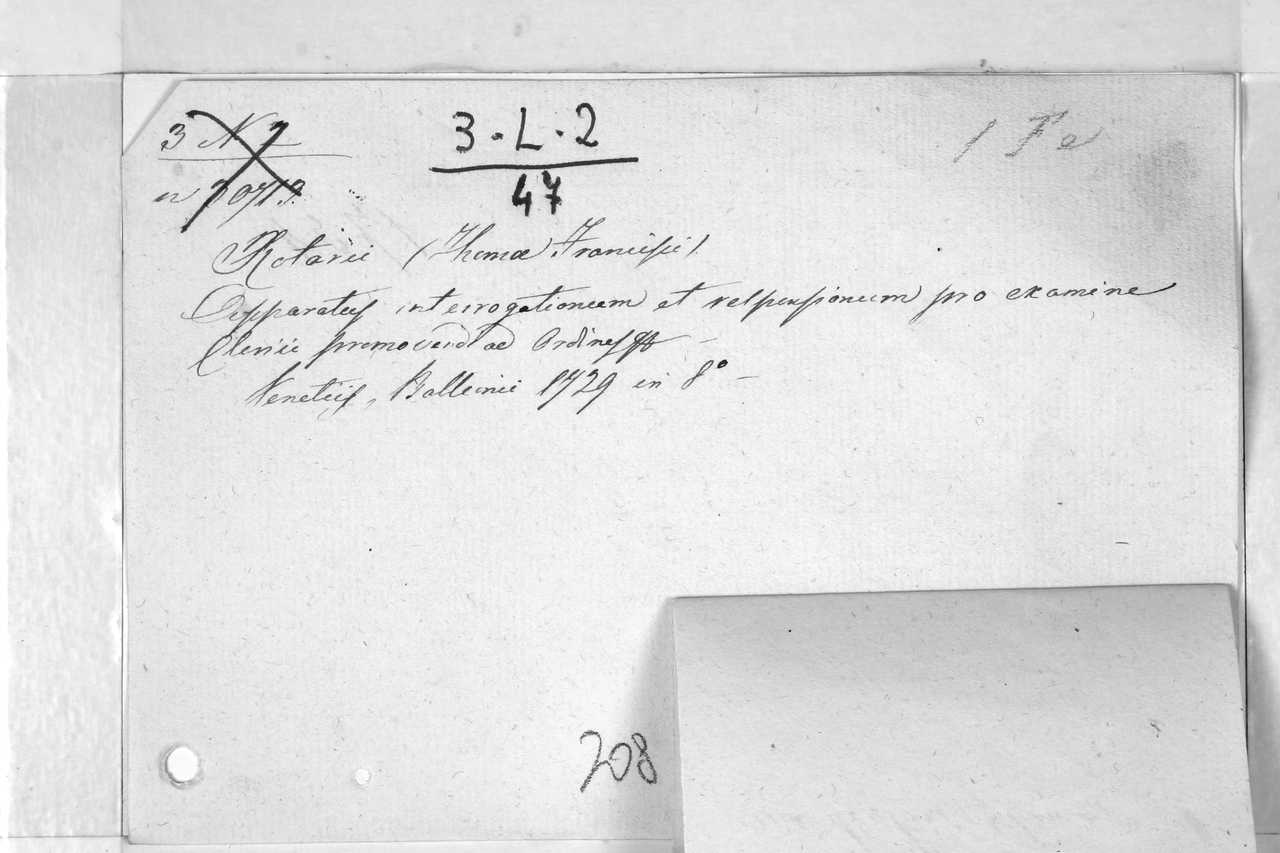 3 N 2
3 · L · 2
1 Fe
47
n 20713.
Rotarii (Thomæ Francisci)
Apparatus interrogationum et responsionum pro examine
Clerici promovend ad Ordines
Venetiis, Balleonii 1729 in 8°
208